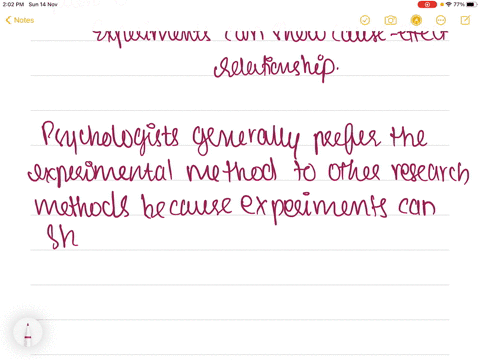 2:02 PM Sun 14 Nov
77%
Notes
experiments can show cause-effect
relationship.
Psychologists generally prefer the
experimental method to other research
methods because experiments can
sh